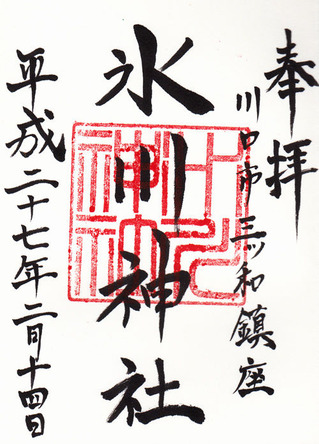 奉拝
川口市三和鎮座
氷川神社
平成二十七年二月十四日